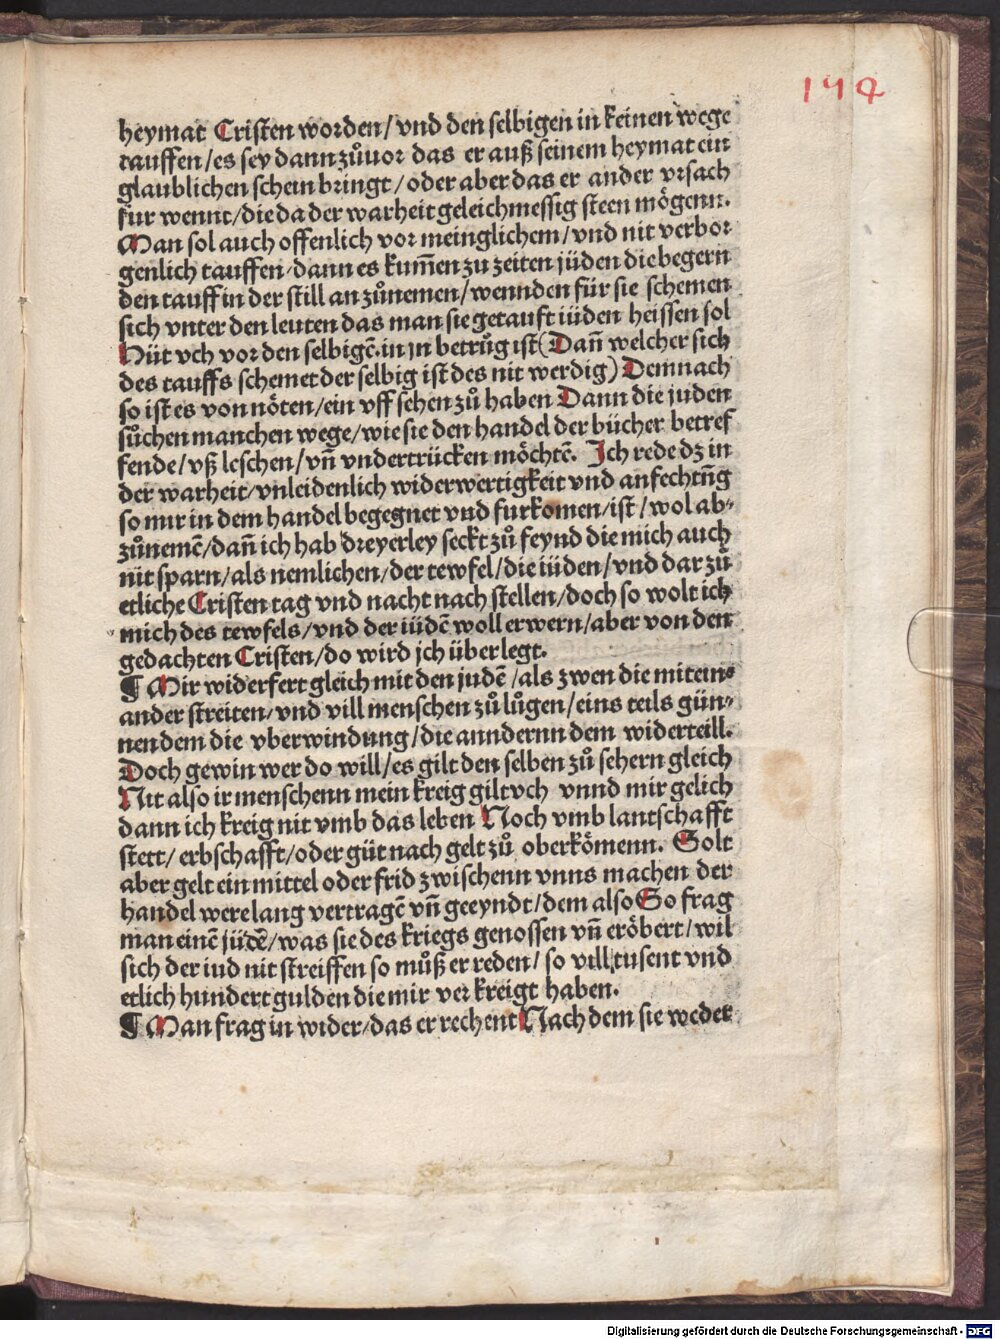 174
heymat Cristen worden/vnd den selbigen in keinen wege
tauffen/es sey dann zůuor das er auß seinem heymat ein
glaublichen schein bringt/oder aber das er ander vrsach
fur wennt/die da der warheit geleichmessig steen mögenn.
Man sol auch offenlich vor meinglichem/vnd nit verbor
genlich tauffen/dann es kum̄en zu zeiten jüden die begern
den tauff in der still an zůnemen/wennden für sie schemen
sich vnter den leuten das man sie getauft iüden heissen sol
Hüt vch vor den selbigē.in jn betrůg ist(Dan̄ welcher sich
des tauffs schemet der selbig ist des nit werdig)Demnach
so ist es von nöten/ein vff sehen zů haben Dann die juden
sůchen manchen wege/wie sie den handel der bücher betref
fende/vß leschen/vn̄ vndertrücken möchtē. Ich rede dz in
der warheit/vnleidenlich widerwertigkeit vnd anfechtn̄g
so mir in dem handel begegnet vnd furkomen/ist/wol ab-
zůnemē/dan̄ ich hab dreyerley seckt zů feynd die mich auch
nit sparn/als nemlichen/der tewfel/die iüden/vnd dar zů
etliche Cristen tag vnd nacht nach stellen/doch so wolt ich
mich des tewfels/vnd der iüdē woll erwern/aber von den
gedachten Cristen/do wird jch über legt.
¶ Mir widerfert gleich mit den judē/als zwen die mitein-
ander streiten/vnd vill menschen zů lůgen/eins teils gün-
nen dem die vberwindung/die anndernn dem widerteill.
Doch gewin wer do will/es gilt den selben zů sehern gleich
Nit also ir menschenn mein kreig gilt vch vnnd mir gelich
dann ich kreig nit vmb das leben Noch vmb lantschafft
stett/erbschafft/oder güt nach gelt zů oberkömenn. Solt
aber gelt ein mittel oder frid zwischenn vnns machen der
handel were lang vertragē vn̄ geeyndt/dem also So frag
man einē jüdē/was sie des kriegs genossen vn̄ eröbert/wil
sich der iud nit streiffen so můß er reden/so vill tusent vnd
etlich hundert gulden die mir ver kreigt haben.
¶ Man frag in wider/das er rechent Nach dem sie weder
Digitalisierung gefördert durch die Deutsche Forschungsgemeinschaft - DFG